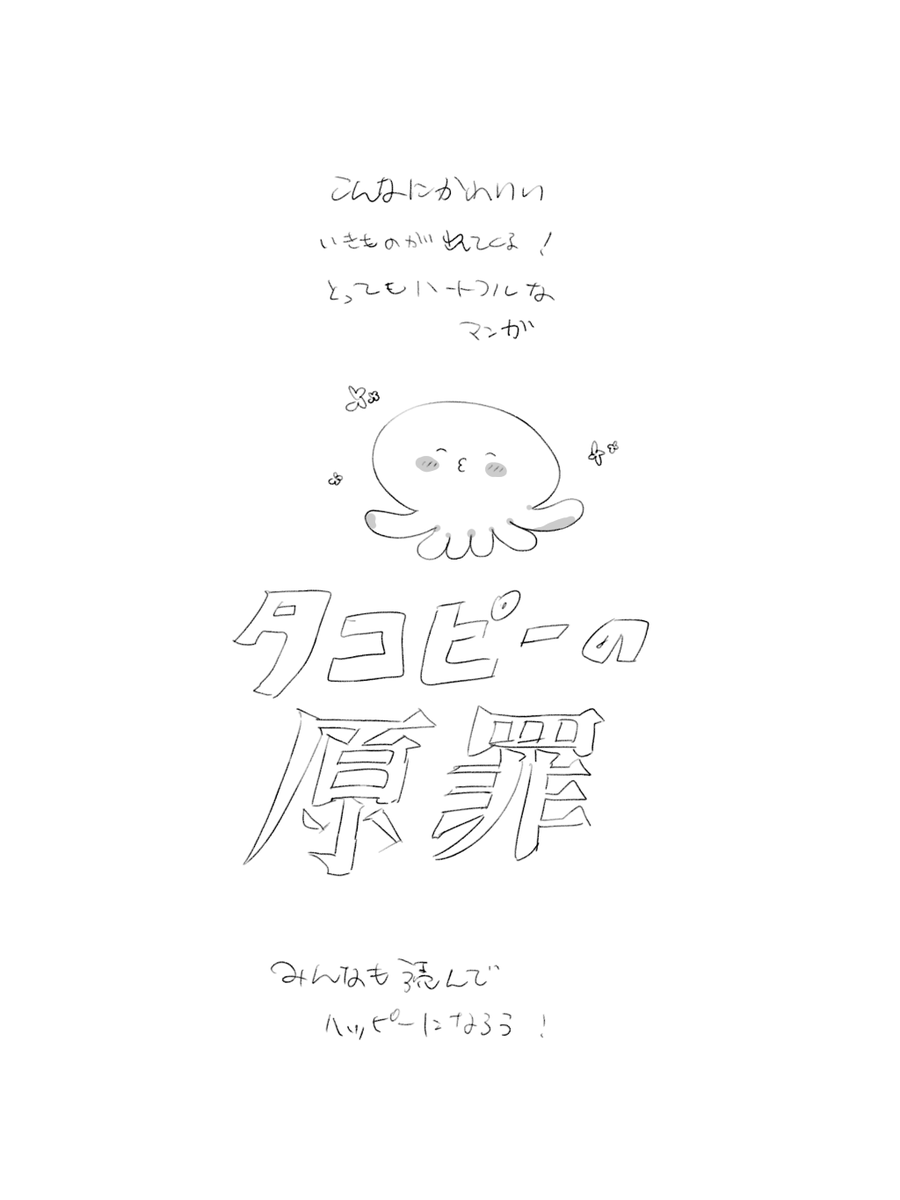 こんなにかわいい
いきものが出てくる！
とってもハートフルな
マンガ
タコピーの
原罪
みんなも読んで
ハッピーになろう！